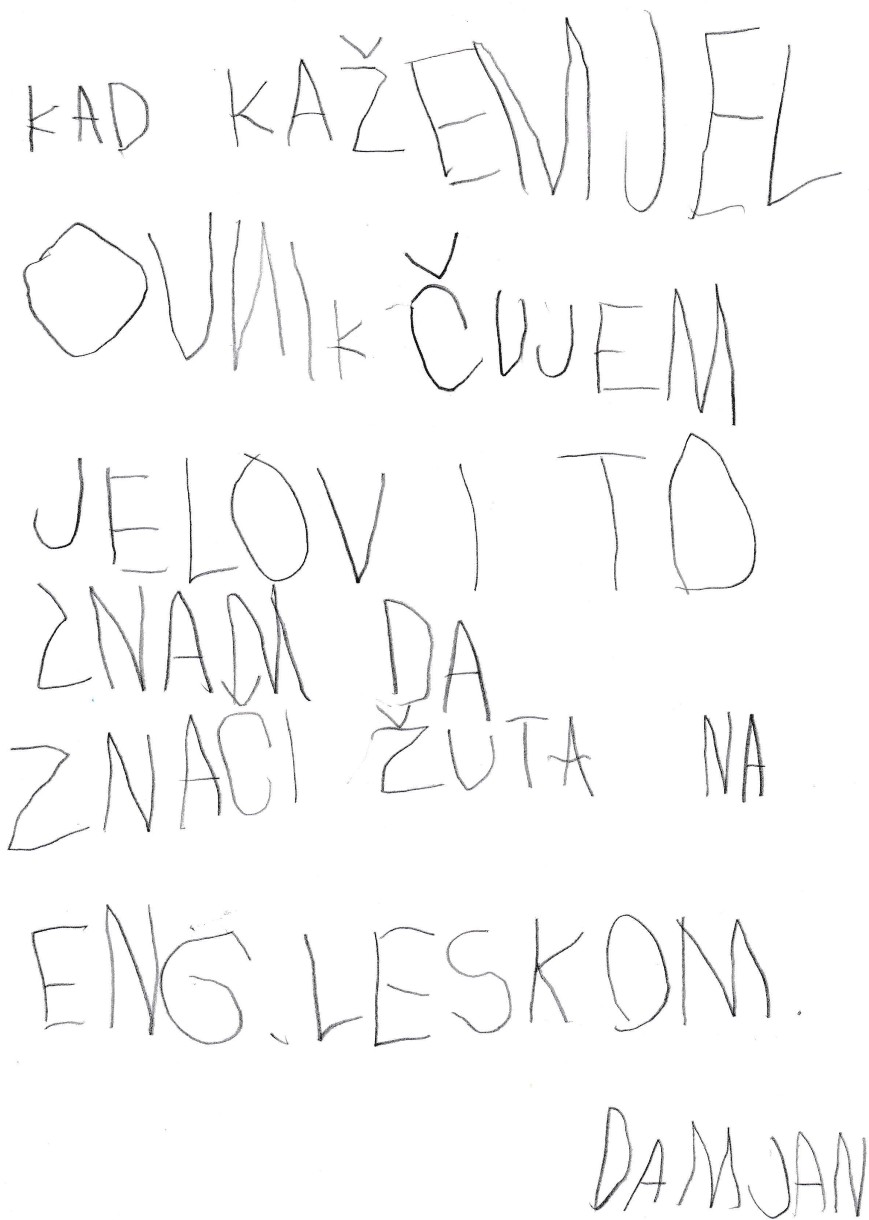 KAD KAŽEMJEL
OVNIK ČUJEM
JELOV I TO
ZNAM DA
ZNAČI ŽUTA NA
ENG.LESKOM.
DAMJAN